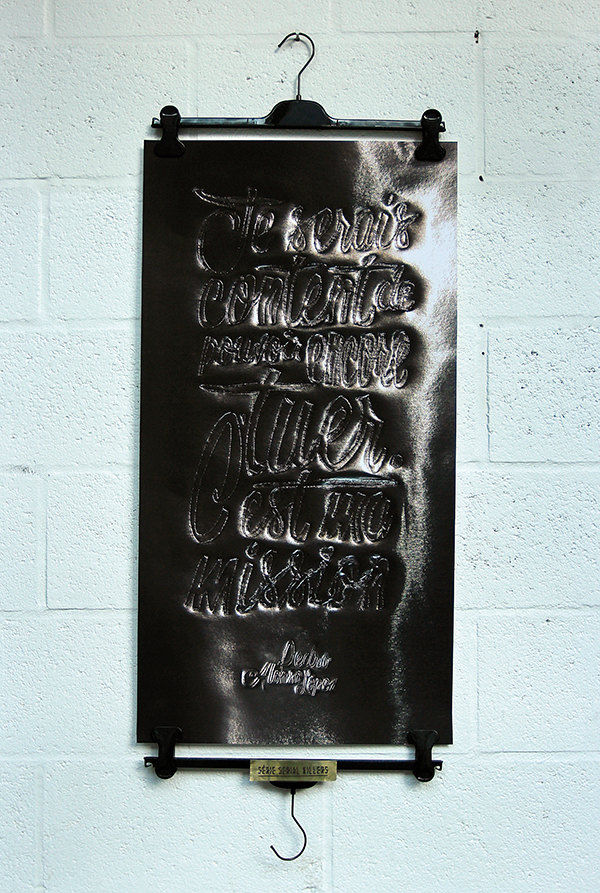 Je serais
content de
pouvoir encore
tuer.
C'est ma
mission
Pedro
Alonso
López
SÉRIE SERIAL KILLERS